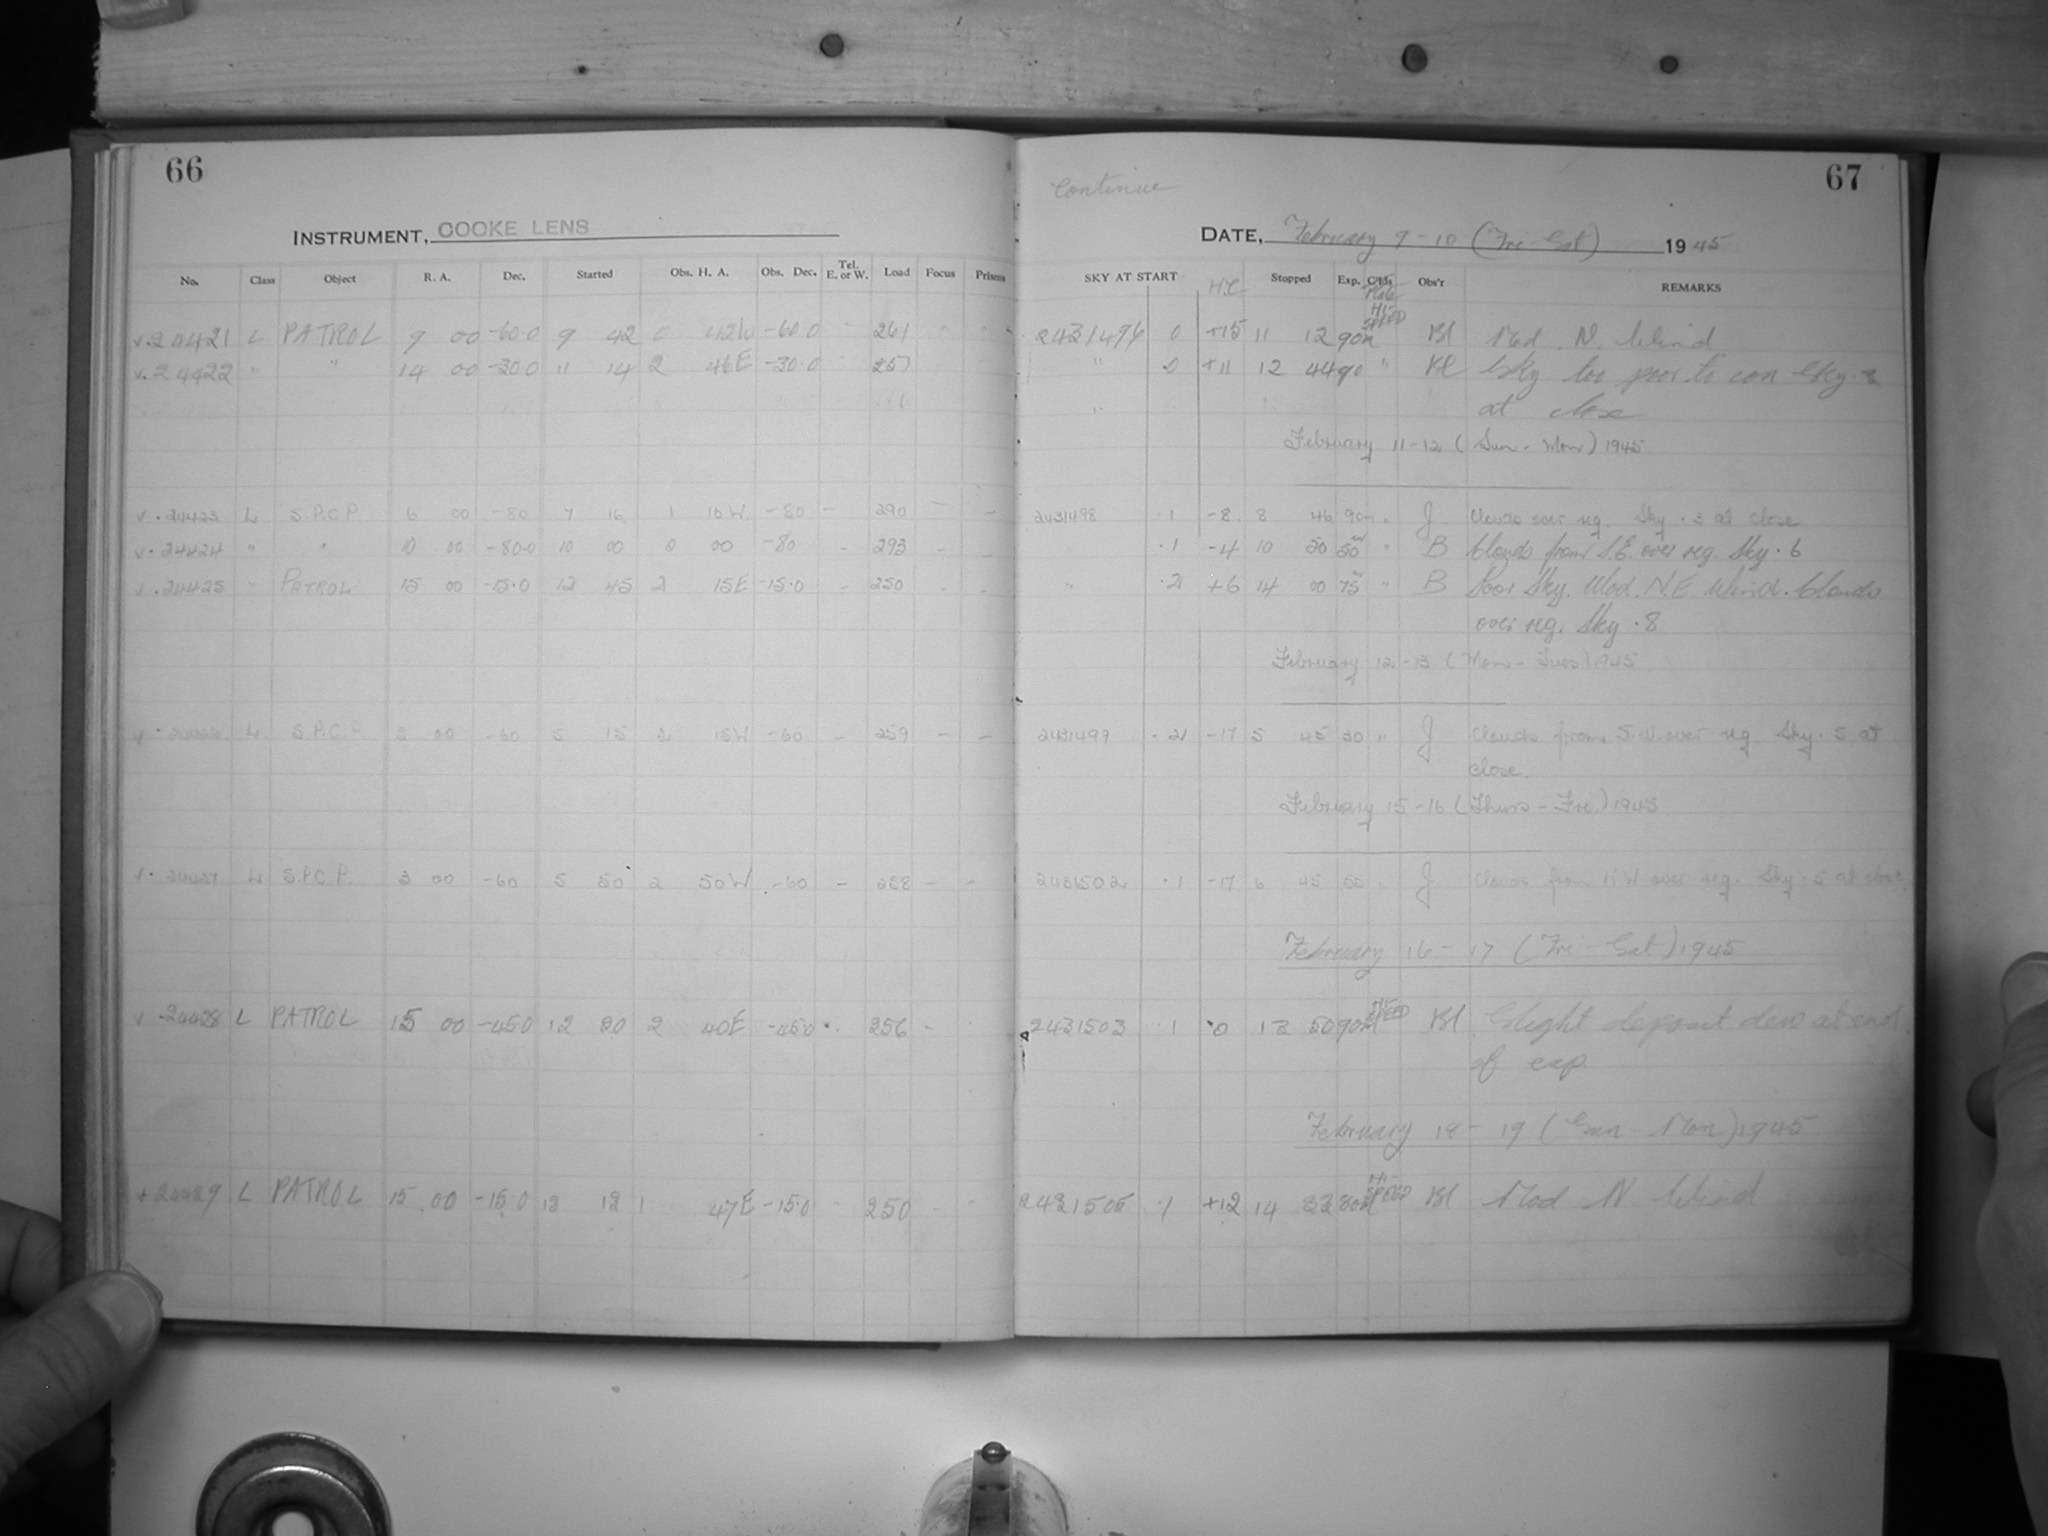 66
INSTRUMENT, COOKE LENS
No. Class Object R. A. Dec. Started Obs. H. A. Obs. Dec. Tel. E. or W. Load Focus Prisms
v. 24421 L PATROL 9 00 -60.0 9 42 0 42W -60.0 261
v. 24422 " " 14 00 -30.0 11 14 2 46E -30.0 257
v. 24423 L S.P.C.P. 6 00 -80 7 16 1 16W -80 - 290 - -
v. 24424 " " 10 00 -80.0 10 00 0 00 -80 - 293 - -
v. 24425 " PATROL 15 00 -15.0 12 45 2 15E -15.0 - 250 - -
v. 24426 L S.P.C.P. 3 00 -60 5 15 2 15W -60 - 259 - -
v. 24427 L S.P.C.P. 3 00 -60 5 50 2 50W -60 - 258 - -
v. 24428 L PATROL 15 00 -45.0 12 20 2 40E -45.0 256 -
24429 L PATROL 15 00 -15.0 13 12 1 47E -15.0 250 - -
Continue
67
DATE, February 9-10 (Fri-Sat) 1945
SKY AT START H.C Stopped Exp. Plate Obs'r REMARKS
2431496 0 +15 11 12 90m HI-SPEED Bl Mod. N. Wind
" 0 +11 12 44 90 " Bl Sky too poor to con Sky
" at close
February 11-12 (Sun-Mon) 1945
2431498 .1 -8 8 46 90m " J Clouds over reg. Sky .3 at close
.1 -4 10 50 50m " B Clouds from S.E. over reg. Sky .6
" .2 +6 14 00 75m " B Poor Sky. Mod. N.E. Wind. Clouds
over reg. Sky .8
February 12-13 (Mon-Tues) 1945
2431499 .2 -17 5 45 30 " J Clouds from S.W. over reg Sky .5 at
close.
February 15-16 (Thurs-Fri.) 1945
2431502 .1 -17 6 45 55 J Clouds from N.W over reg. Sky .5 at close.
February 16-17 (Fri-Sat) 1945
2431503 .1 0 13 50 90m HI-SPEED Bl Slight deposit dew at end
of exp.
February 18-19 (Sun-Mon) 1945
2431505 .1 +12 14 32 80m HI-SPEED Bl Mod N Wind